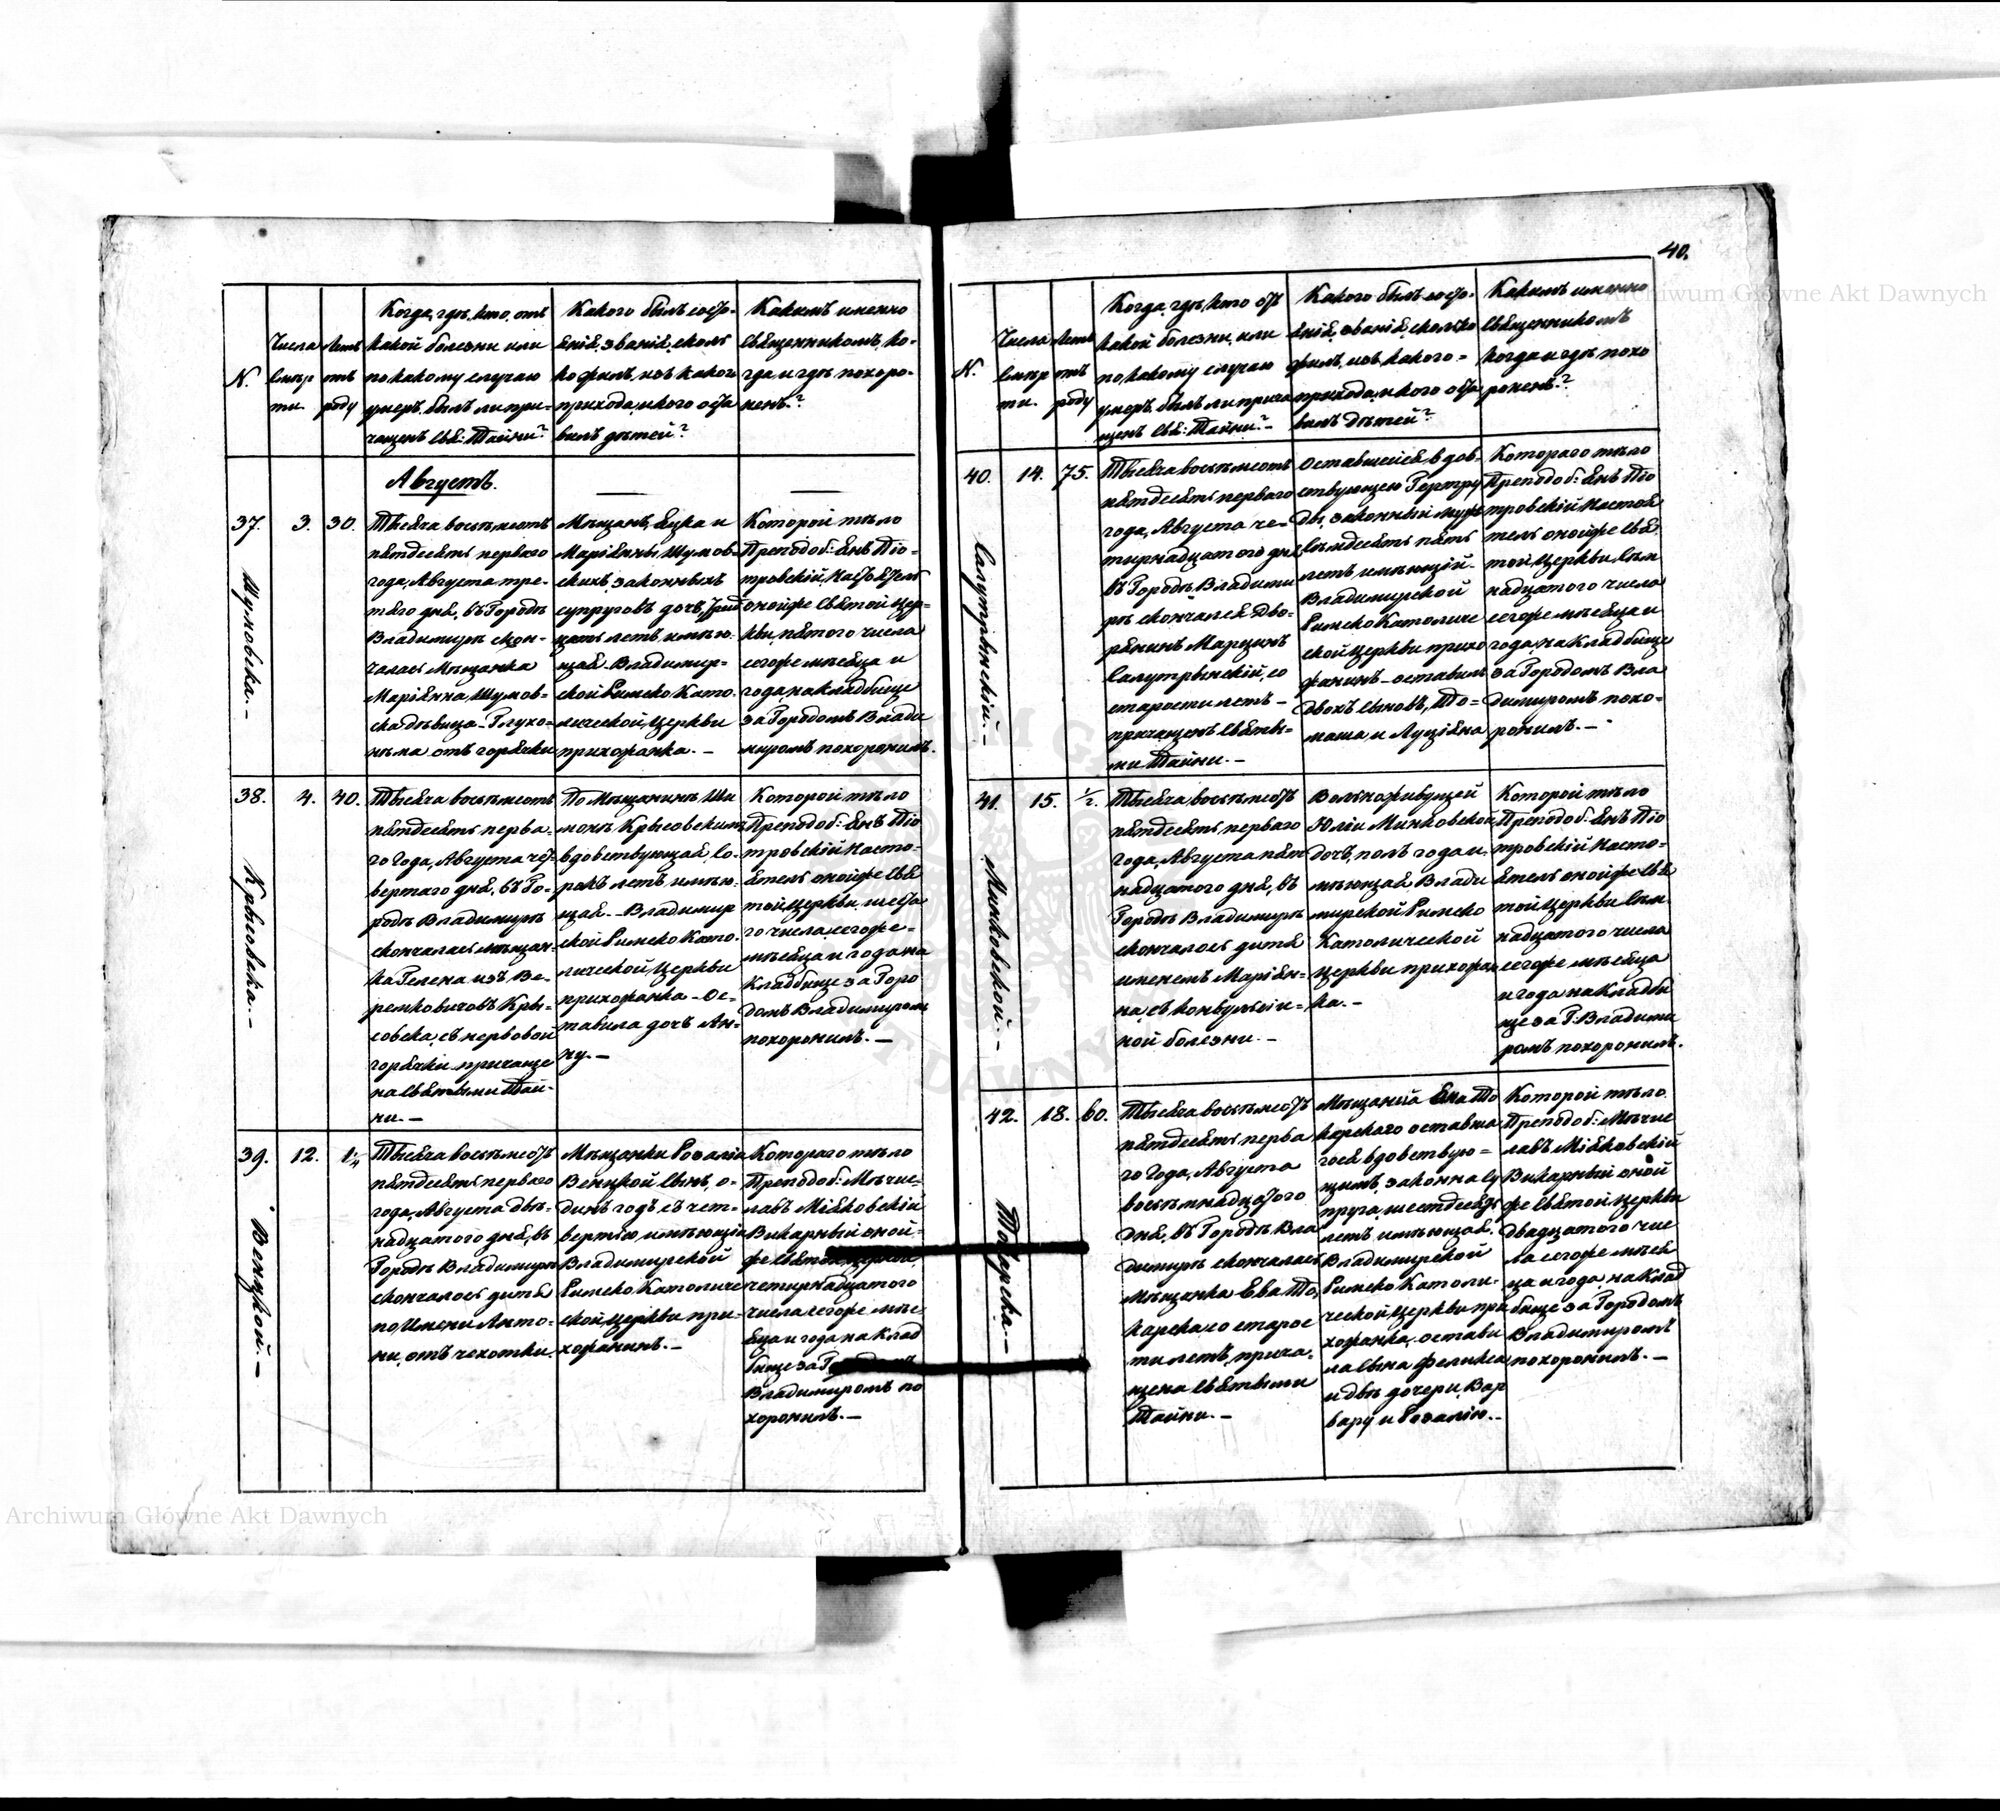 40.
Archiwum Główne Akt Dawnych
N.
Числа
смер
ти.
Летъ
отъ
роду
Когда, гдѣ, кто, отъ
какой болезни или
по какому случаю
умеръ, былъ ли при-
чащенъ Свя: Тайни?
Какого былъ состо-
янія, званія, сколь
ко жилъ, изъ какого
прихода, и кого оста
вилъ дѣтей?
Какимъ именно
священникомъ, ко-
гда и гдѣ похоро-
ненъ.?
Августъ.
37.
3.
30.
Шумовска.-
Тысяча восемьсотъ
пятдесятъ перваго
года, Августа тре-
тяго дня, въ Городѣ
Владимирѣ скон-
чалась Мещанка
Маріянна Шумов-
ска дѣвица - Глухо-
нѣма отъ горячки
Мещанъ, Яцка и
Маріянны Шумов-
скихъ законныхъ
супруговъ дочь, трид
цать летъ имею-
щая - Владимир-
ской Римско Като-
лической, Церкви
прихожанка. -
Которой тѣло
Преподоб: Янъ Піо-
тровскій, Настоятель
онойже Святой Цер-
кви, пятого числа
сегоже мѣсяца и
года, на кладбище
за Городомъ Влади
миромъ похоронилъ.
38.
4.
40.
Крысовска.-
Тысяча восемьсотъ
пятдесятъ перва-
го Года, Августа чет-
вертаго дня, въ Го-
родѣ Владимирѣ
скончалась мещан-
ка Гелена изъ Ве-
ремковичовъ Кры-
совска, съ нервовой
горячки причаще
на Святыми Тай-
ни. -
По Мещанинѣ Ши
монѣ Крысовскимъ
вдовствующая, со-
рокъ летъ имею-
щая. - Владимир
ской Римско Като-
лической, Церкви
прихожанка - Ос-
тавила дочь Ан-
ну. -
Которой тѣло
Преподоб: Янъ Піо
тровскій Насто-
ятель онойже Свя
той Церкви, шеста
го числа, сегоже -
мѣсяца и года на
кладбище за Горо
домъ Владимиромъ
похоронилъ. -
39.
12.
1¼
Веницкой.-
Тысяча восемьсотъ
пятдесятъ перваго
года, Августа двѣ-
надцатого дня, въ
Городѣ Владимирѣ
скончалось дитя
по Имени Анто-
ни, отъ чохотки.
Мещанки Розаліи
Веницкой сынъ, о-
динъ годъ съ чет-
вертью имеющій
Владимирской
Римско Католиче
ской, церкви при-
хожанинъ. -
Котораго тѣло
Преподоб: Мечис-
лавъ Міяковскій
Викарный оной-
же Святой церкви,
четирнадцатого
числа сегоже мѣс-
яца и года на Клад
бище за Городомъ
Владимиромъ по
хоронилъ. -
N.
Числа
смер
ти.
Летъ
отъ
роду
Когда, гдѣ, кто отъ
какой болезни, или
по какому случаю
умеръ, былъ ли прича
щенъ Свя: Тайни?-
Какого былъ состо-
янія, званія, сколько
жилъ, изъ какого -
прихода, и кого оста
вилъ дѣтей?
Какимъ именно
Священникомъ
когда и гдѣ похо
роненъ.?
40.
14.
75.
Салутрынскій.-
Тысяча восемьсотъ
пятдесятъ перваго
года, Августа че-
тирнадцатого дня
въ Городѣ Владими
рѣ скончался Дво-
рянинъ Марцинъ
Салутрынскій, со
старости летъ -
причащенъ Святы-
ми Тайни. -
Оставшейся вдов-
ствующею Гертру
ды, законный мужъ
семдесятъ пять
летъ имѣющій -
Владимирской
Римско Католиче
ской Церкви прихо
жанинъ - оставилъ
двохъ сыновъ, То-
маша и Луціяна
Котораго тѣло
Преподоб: Янъ Піо
тровскій Настоя
тель онойже Свя
той Церкви, Сѣм
надцатого числа
сегоже мѣсяца и
года, на Кладбище
за Городомъ Вла
димиромъ похо-
ронилъ. -
41.
15.
½.
Минковской.-
Тысяча восемьсотъ
пятдесятъ перваго
года, Августа пят
надцатого дня, въ
Городѣ Владимирѣ
скончалось дитя
именемъ Маріян-
на, съ конвульсій-
ной болезни. -
Вольноживущей
Юліи Минковской
дочь, полъ года и-
меющая Влади
мирской Римско
Католической
Церкви прихожан
ка. -
Которой тѣло
Преподоб: Янъ Піо
тровскій Насто-
ятель онойже Свя
той Церкви Сѣм
надцатого числа
сегоже мѣсяца
и года на Кладби
ще за Г: Владими
ромъ похоронилъ.
42.
18.
60.
Токарска.-
Тысяча восемьсотъ
пятдесятъ перва
го Года, Августа
восемьнадцатого
дня, въ Городѣ Вла
димирѣ скончалась
Мещанка Ева То
карска со старос
ти летъ, прича-
щена Святыми
Тайни. -
Мещанина Яна То
карского оставша
гося вдовствую-
щимъ, законна су
пруга, шестдесятъ
летъ имеющая.
Владимирской
Римско Католи-
ческой Церкви при
хожанка, остави
ла сына Феликса
и двѣ дочери, Вар
вару и Розалію. -
Которой тѣло
Преподоб: Мечис
лавъ Міяковскій
Викарный оной
же Святой Церкви
двадцатого чис
ла сегоже мѣся
ца и года, на Клад
бище за Городомъ
Владимиромъ
похоронилъ. -
Archiwum Główne Akt Dawnych